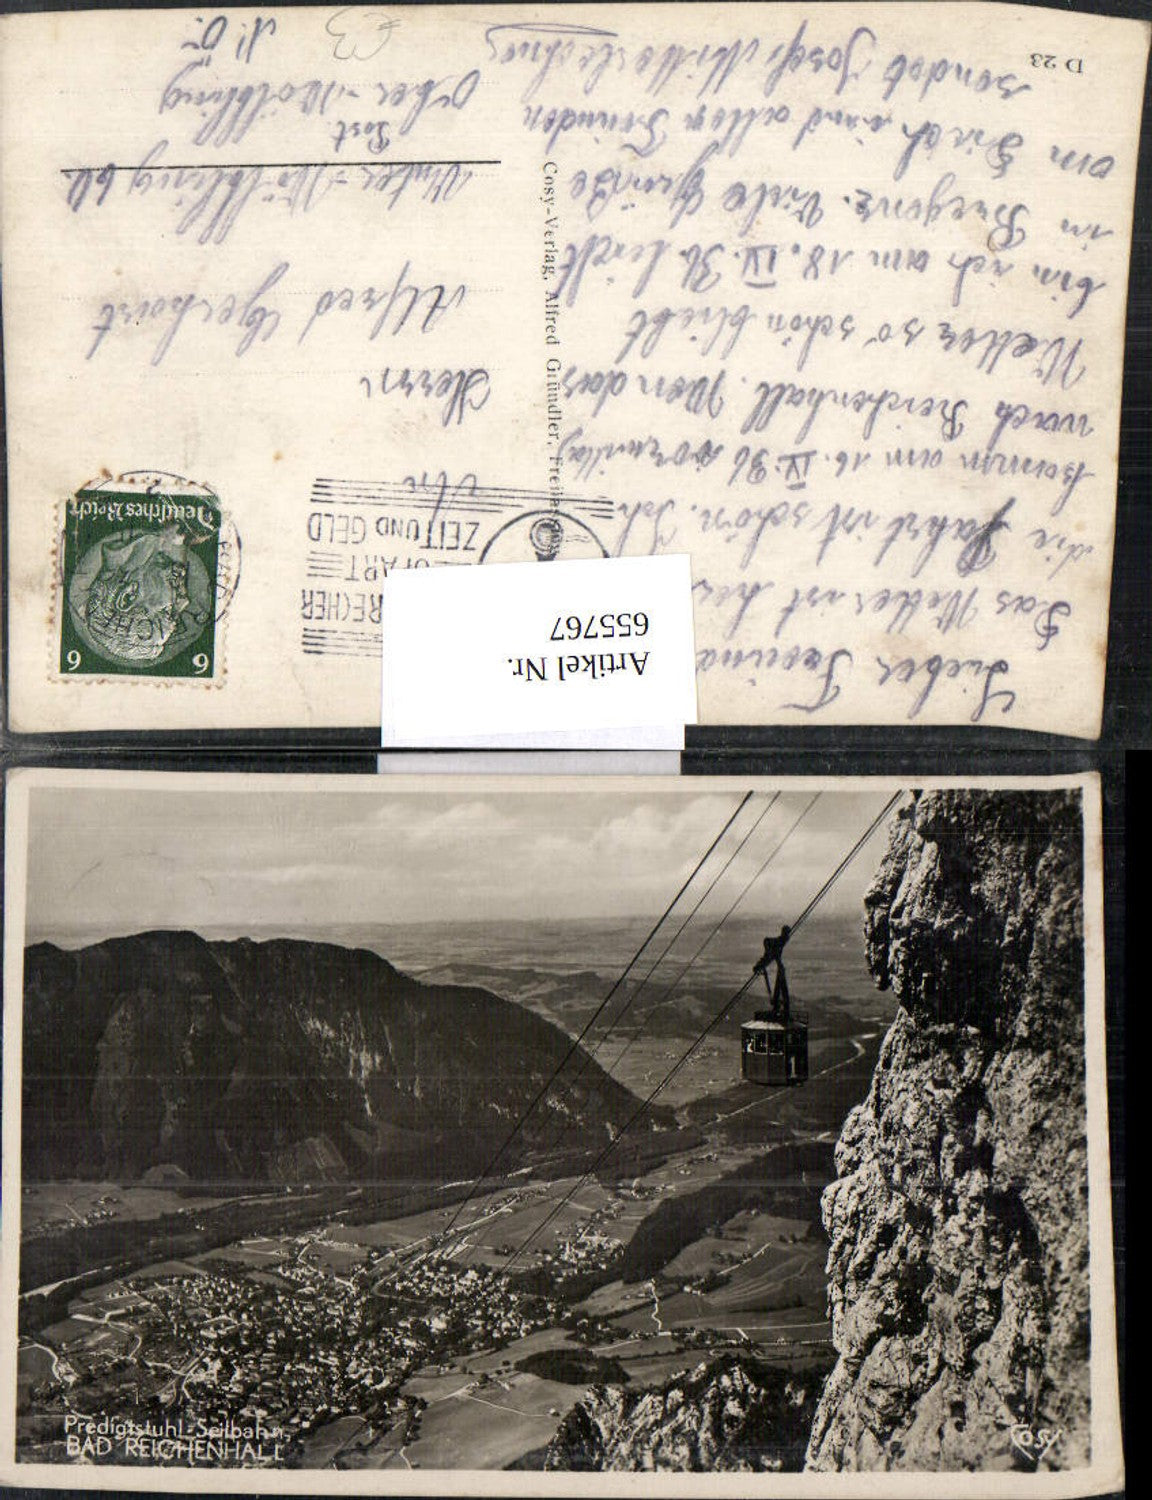 Lieber Freund
Das Wetter ist
die Fahrt ist schön. Ich
komm am 16. IV. 36 vormittag
nach Reichenhall. Wen das
Wetter so schön bleibt
bin ich am 18. IV. 36 leicht
in Bregenz. Viele Grüße
an Dich und allen Freunden
sendet Josef Mitterlechner
D 23
Cosy-Verlag, Alfred Gründler, Freilassing
RECHER
ZEIT UND GELD
6 6
Deutsches Reich
An
Herrn
Alfred Gerhart
Unter-Wölbling 60.
Post
Ober-Wölbling
N. Ö.
Artikel Nr.
655767
1
Predigtstuhl-Seilbahn,
BAD REICHENHALL
Cosy